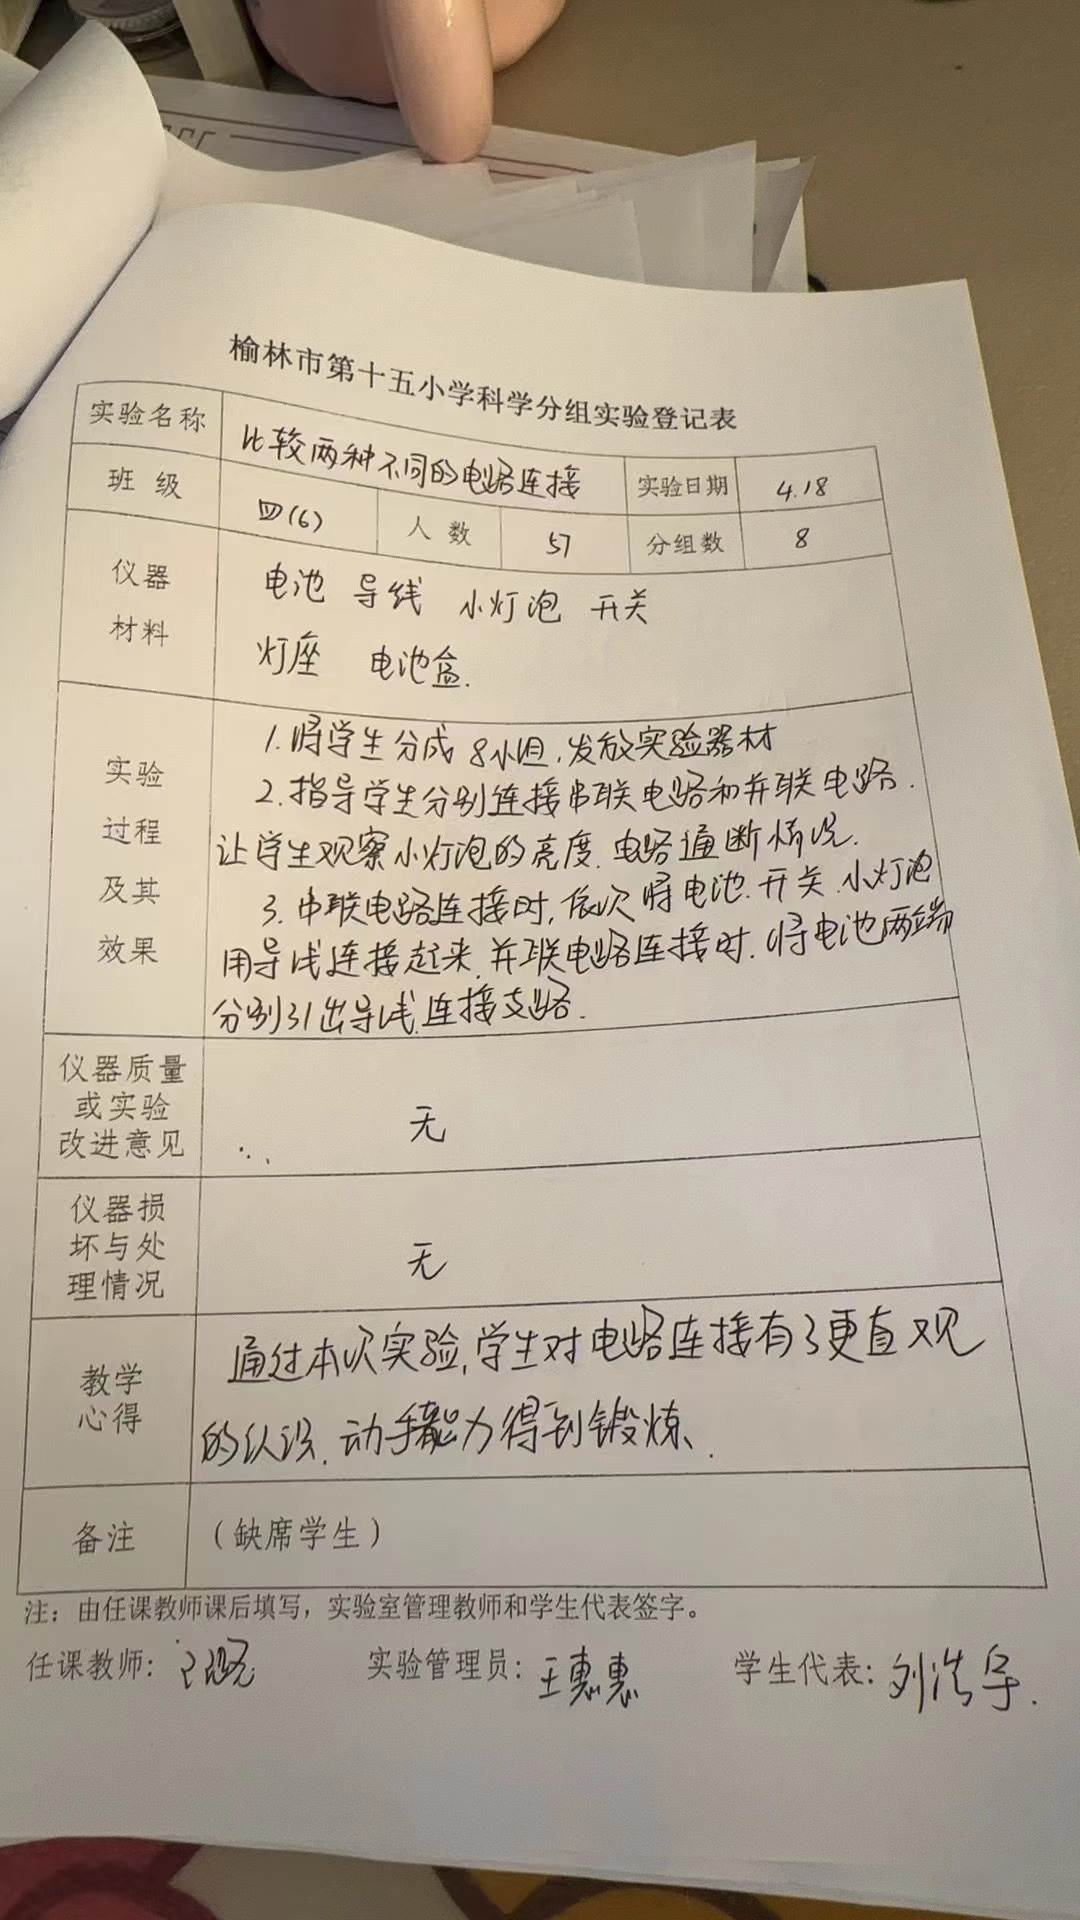 榆林市第十五小学科学分组实验登记表
实验名称 比较两种不同的电路连接 实验日期 4.18
班级 四(6) 人数 57 分组数 8
仪器
材料
电池 导线 小灯泡 开关
灯座 电池盒.
实验
过程
及其
效果
1.将学生分成8小组,发放实验器材
2.指导学生分别连接串联电路和并联电路.
让学生观察小灯泡的亮度.电路通断情况.
3.串联电路连接时,依次将电池.开关.小灯泡
用导线连接起来.并联电路连接时.将电池两端
分别引出导线.连接支路.
仪器质量
或实验
改进意见
无
仪器损
坏与处
理情况
无
教学
心得
通过本次实验,学生对电路连接有了更直观
的认识.动手能力得到锻炼.
备注 (缺席学生)
注：由任课教师课后填写，实验室管理教师和学生代表签字。
任课教师: 实验管理员: 王惠惠 学生代表: 刘浩宇.